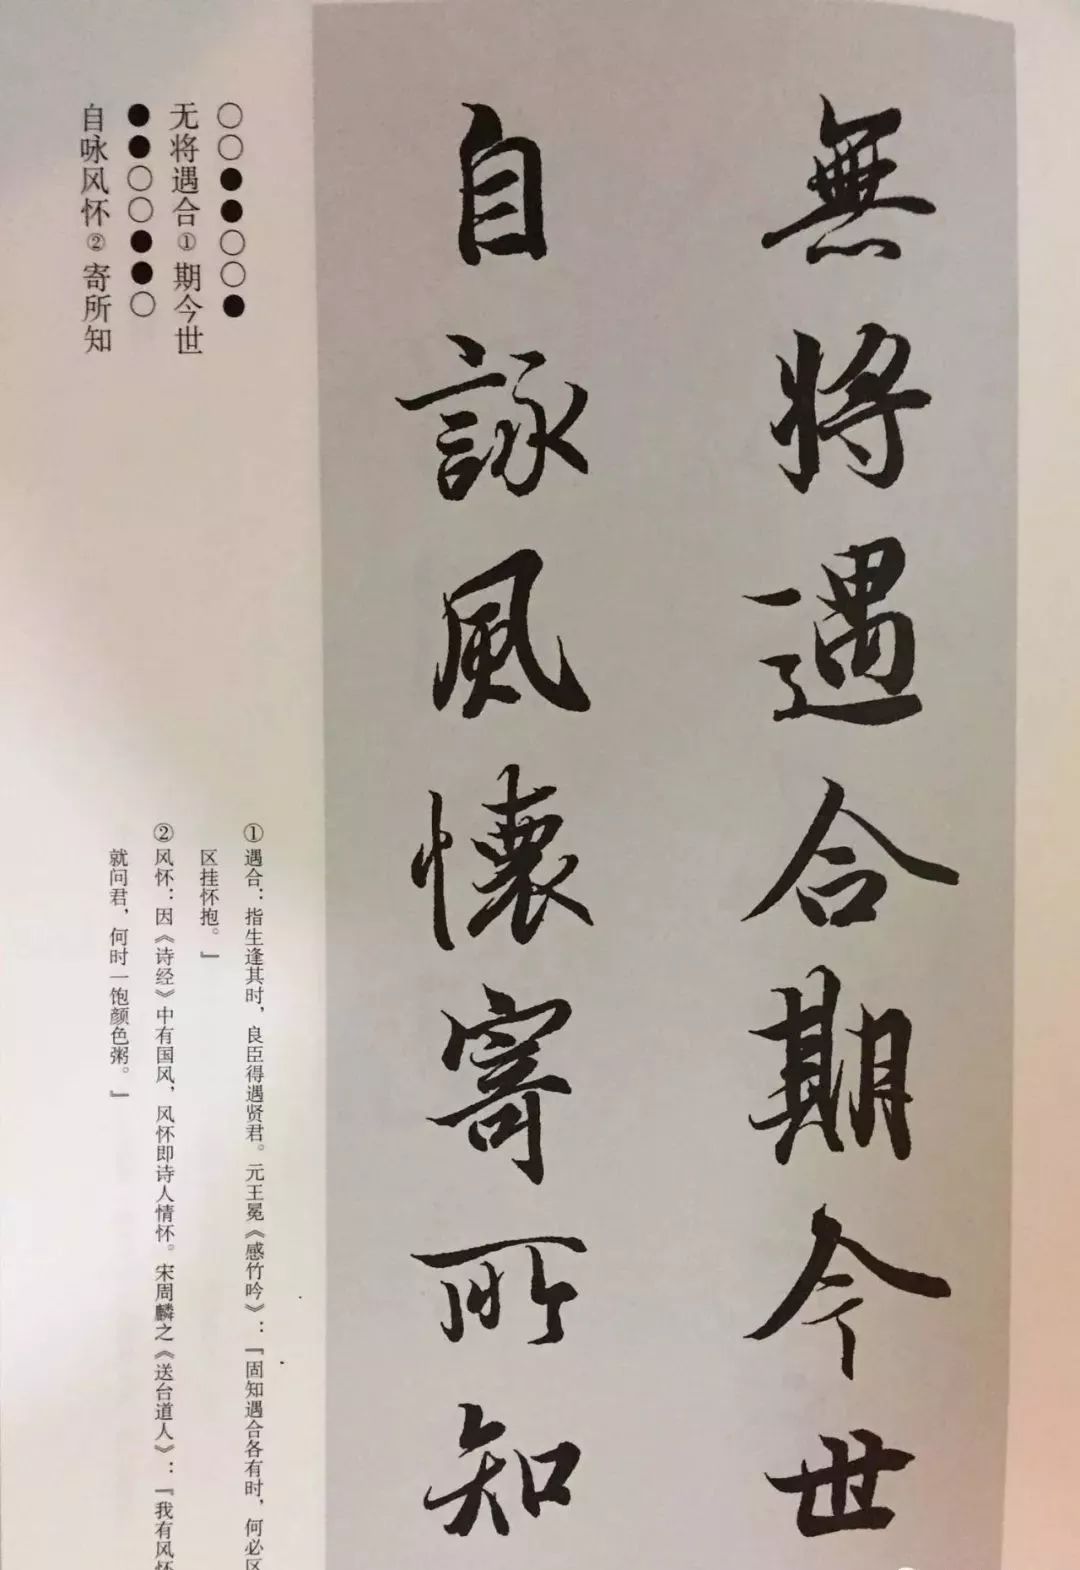 無將遇合期今世
自詠風懷寄所知
○○●●○○●
无将遇合①期今世
●●○○●●○
自咏风怀②寄所知
①遇合：指生逢其时，良臣得遇贤君。元王冕《感竹吟》：『固知遇合各有时，何必区
区挂怀抱。』
②风怀：因《诗经》中有国风，风怀即诗人情怀。宋周麟之《送台道人》：『我有风怀
就问君，何时一饱颜色粥。』